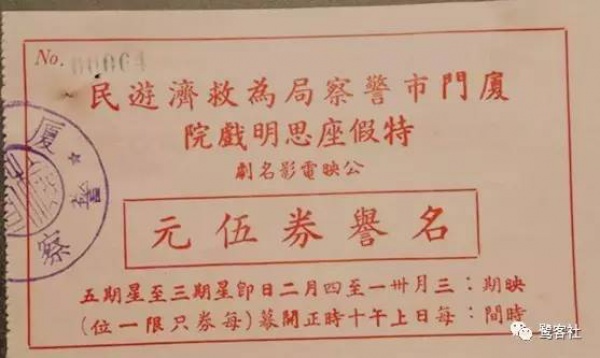 No. 00064
廈門市警察局為救濟遊民
特假座思明戲院
公映電影名劇
名譽券伍元
映期：三月卅一至四月二日即星期三至星期五
時間：每日上午十時正開幕(每券只限一位)
廈
警
察
鹭客社